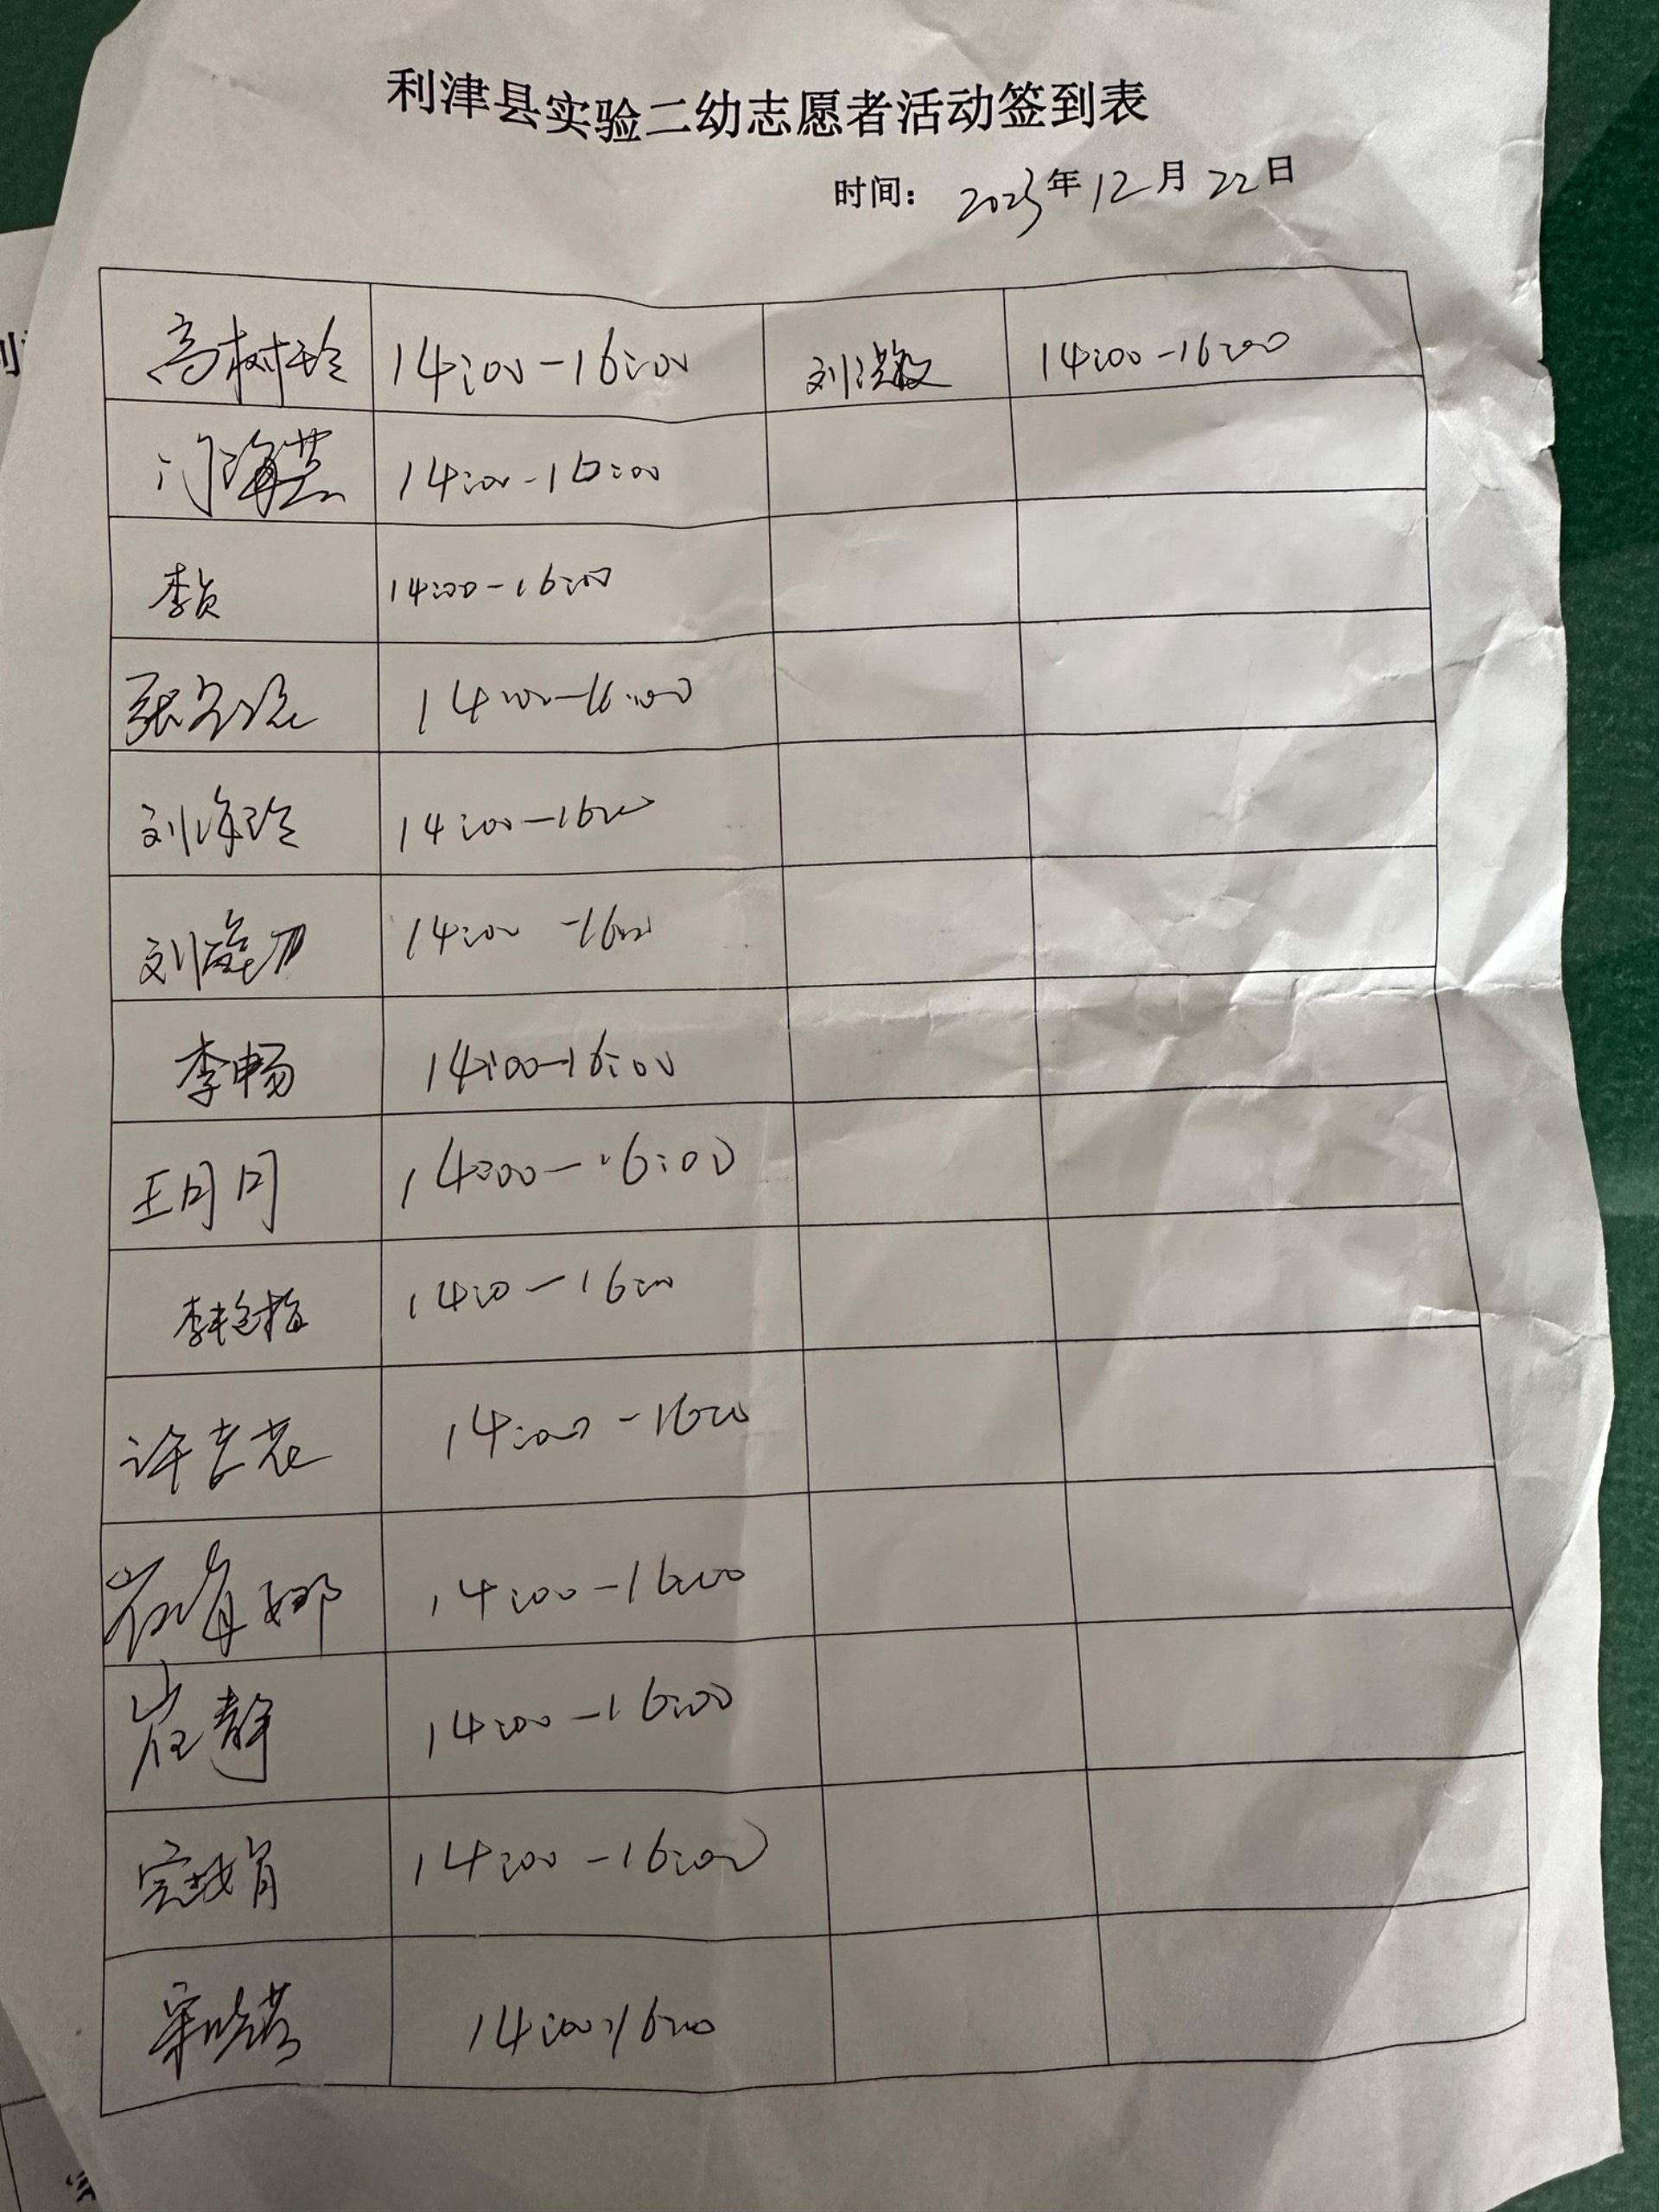 利津县实验二幼志愿者活动签到表
时间： 2023年12月22日
高树玲 14:00-16:00 刘洪敏 14:00-16:00
门海燕 14:00-16:00
李贞 14:00-16:00
张 14:00-16:00
刘海玲 14:00-16:00
刘 14:00-16:00
李畅 14:00-16:00
王月月 14:00-16:00
李艳梅 14:00-16:00
许吉花 14:00-16:00
崔肖娜 14:00-16:00
崔静 14:00-16:00
14:00-16:00
宋晓蓉 14:00-16:00